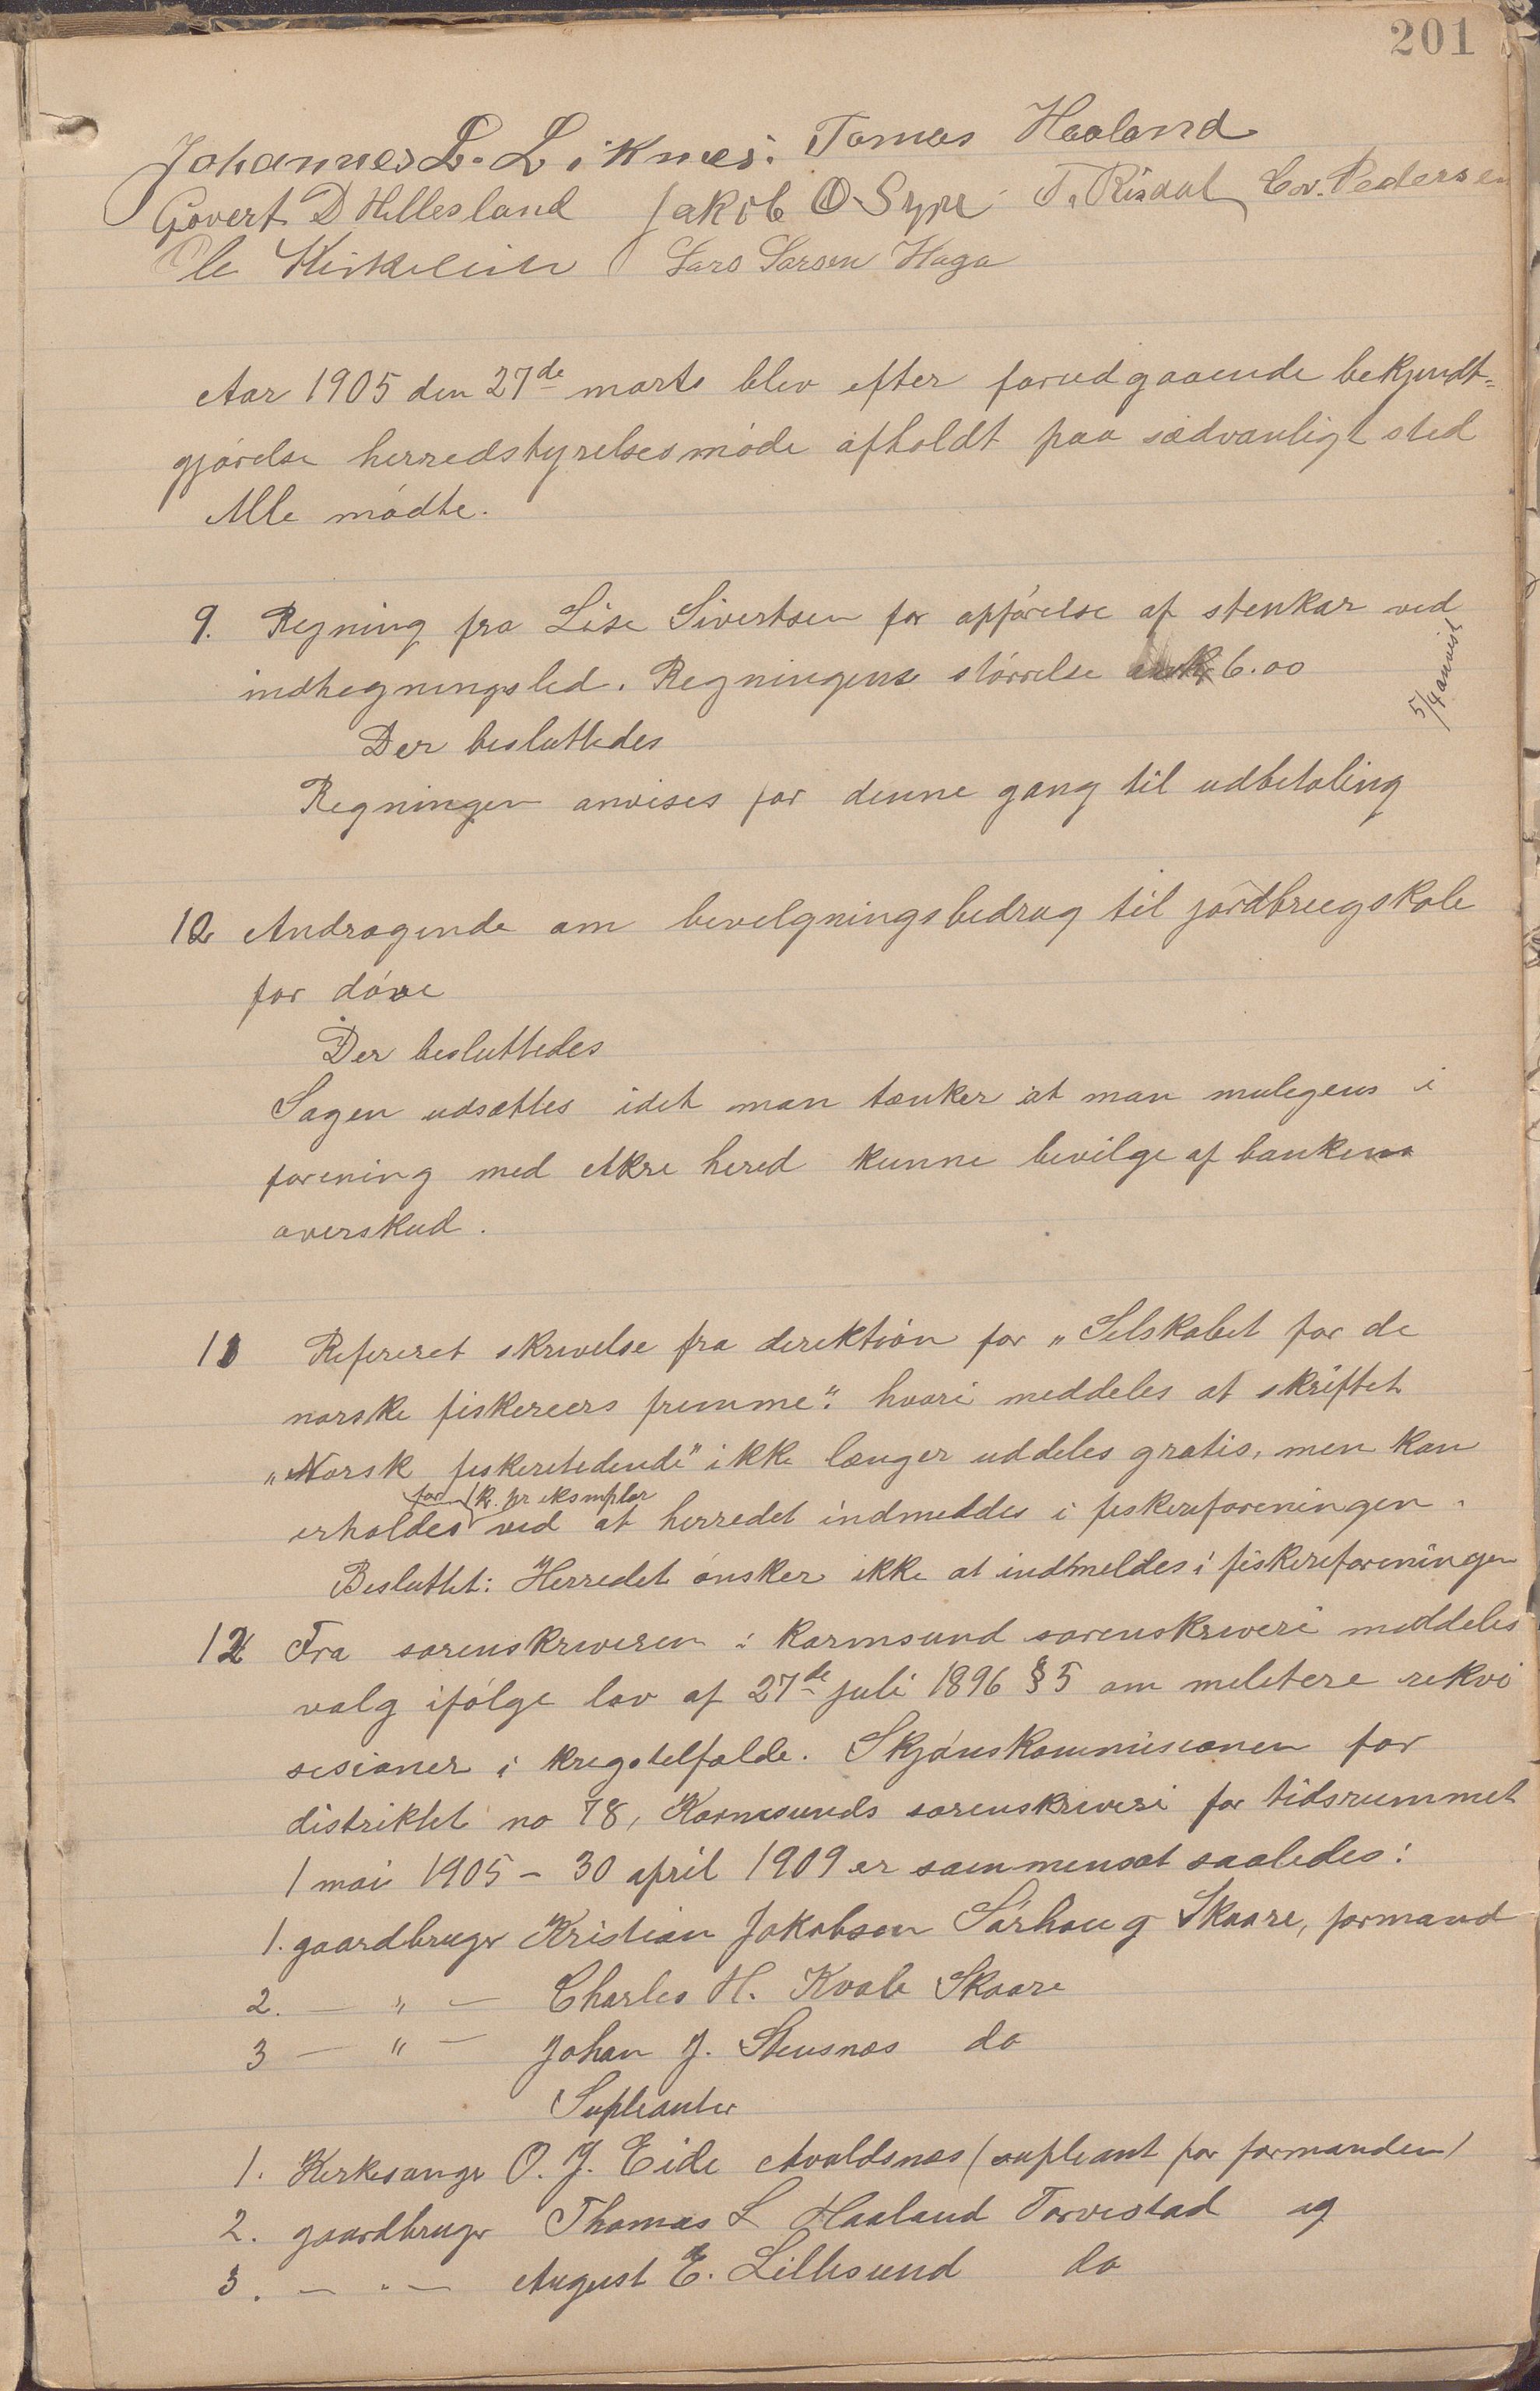 201
Johannes L. Liknes. Tomas Haaland
Govert D Hillesland Jakob O Sype T. Risdal Chr. Pedersen
Ole Kirkeleit Lars Larsen Haga
Aar 1905 den 27de marts blev efter forudgaaende bekjendt-
gjørelse herredstyrelsesmøde afholdt paa sædvanligt sted
Alle mødte.
9. Regning fra Lise Sivertsen for opførelse af stenkar ved
indhegningsled. Regningens størrelse kr 6.00
5/4 anvist
Der besluttedes
Regningen anvises for denne gang til udbetaling
10 Andragende om bevelgningsbedrag til jordbrugskole
for døve
Der besluttedes
Sagen udsættes idet man tænker at man mulegens i
forening med Akre hered kunne bevilge af bankens
overskud.
11 Refereret skrivelse fra direktion for „Selskabet for de
norske fiskeriers fremme" hvori meddeles at skriftet
„Norsk fiskeritidende" ikke længer uddeles gratis, men kan
for 1 kr. pr eksmplar
erholdes ved at herredet indmeddes i fiskereforeningen.
Besluttet: Herredet ønsker ikke at indmeldes i fiskereforeningen
12 Fra sorenskriveren i Karmsund sorenskriveri meddeles
valg ifølge lov af 27de juli 1896 § 5 om militere rekvi
sisioner i krigstelfælde. Skjønskommisionen for
distriktet no 78, Karmsunds sorenskriveri for tidsrummet
1 mai 1905 – 30 april 1909 er sammensat saaledes:
1. gaardbruger Kristian Jakobsen Sørhaug Skaare, formand
2. — „ — Charles H. Kvale Skaare
3 — „ — Johan J. Stensnæs do
Supleanter
1. Kirkesanger O. J. Eide Avaldsnæs (supleant for formanden)
2. gaardbruger Thomas L Haaland Torvestad og
3. — „ — August E. Lillesund do